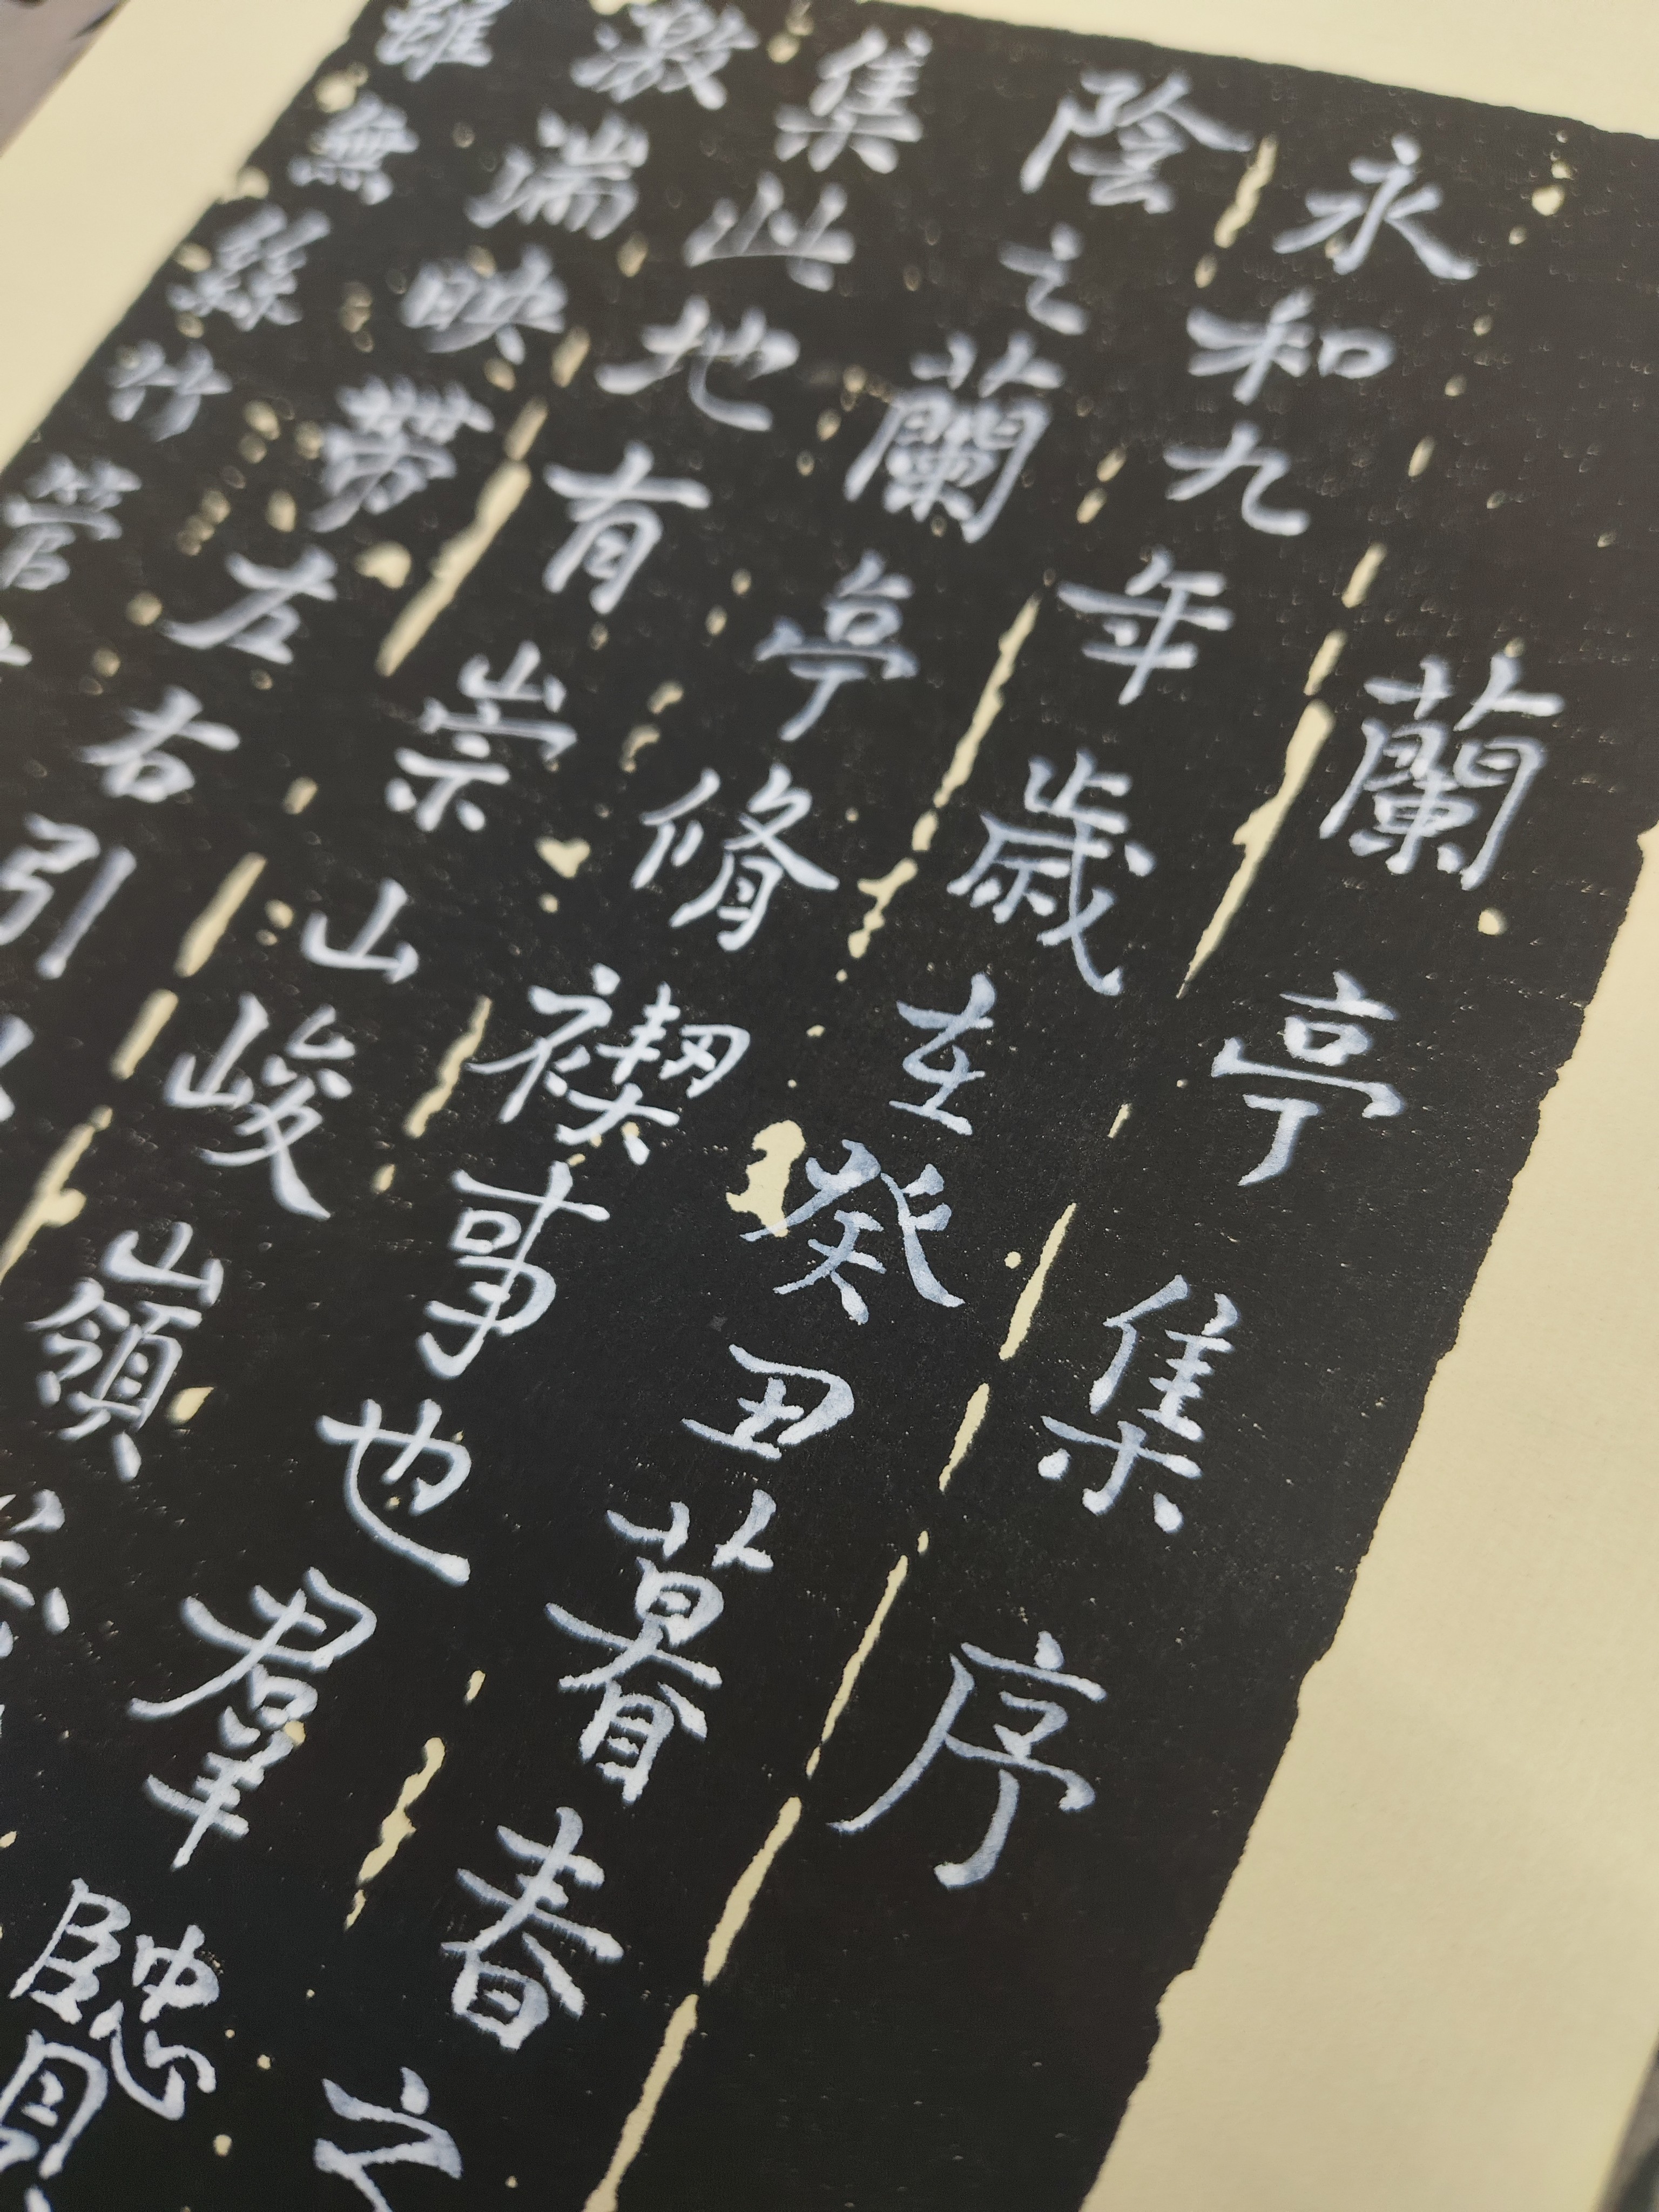 蘭亭集序
永和九年歲在癸丑暮春之
陰之蘭亭脩禊事也羣賢
集此地有崇山峻嶺茂
激湍映帶左右引
雖無絲竹管